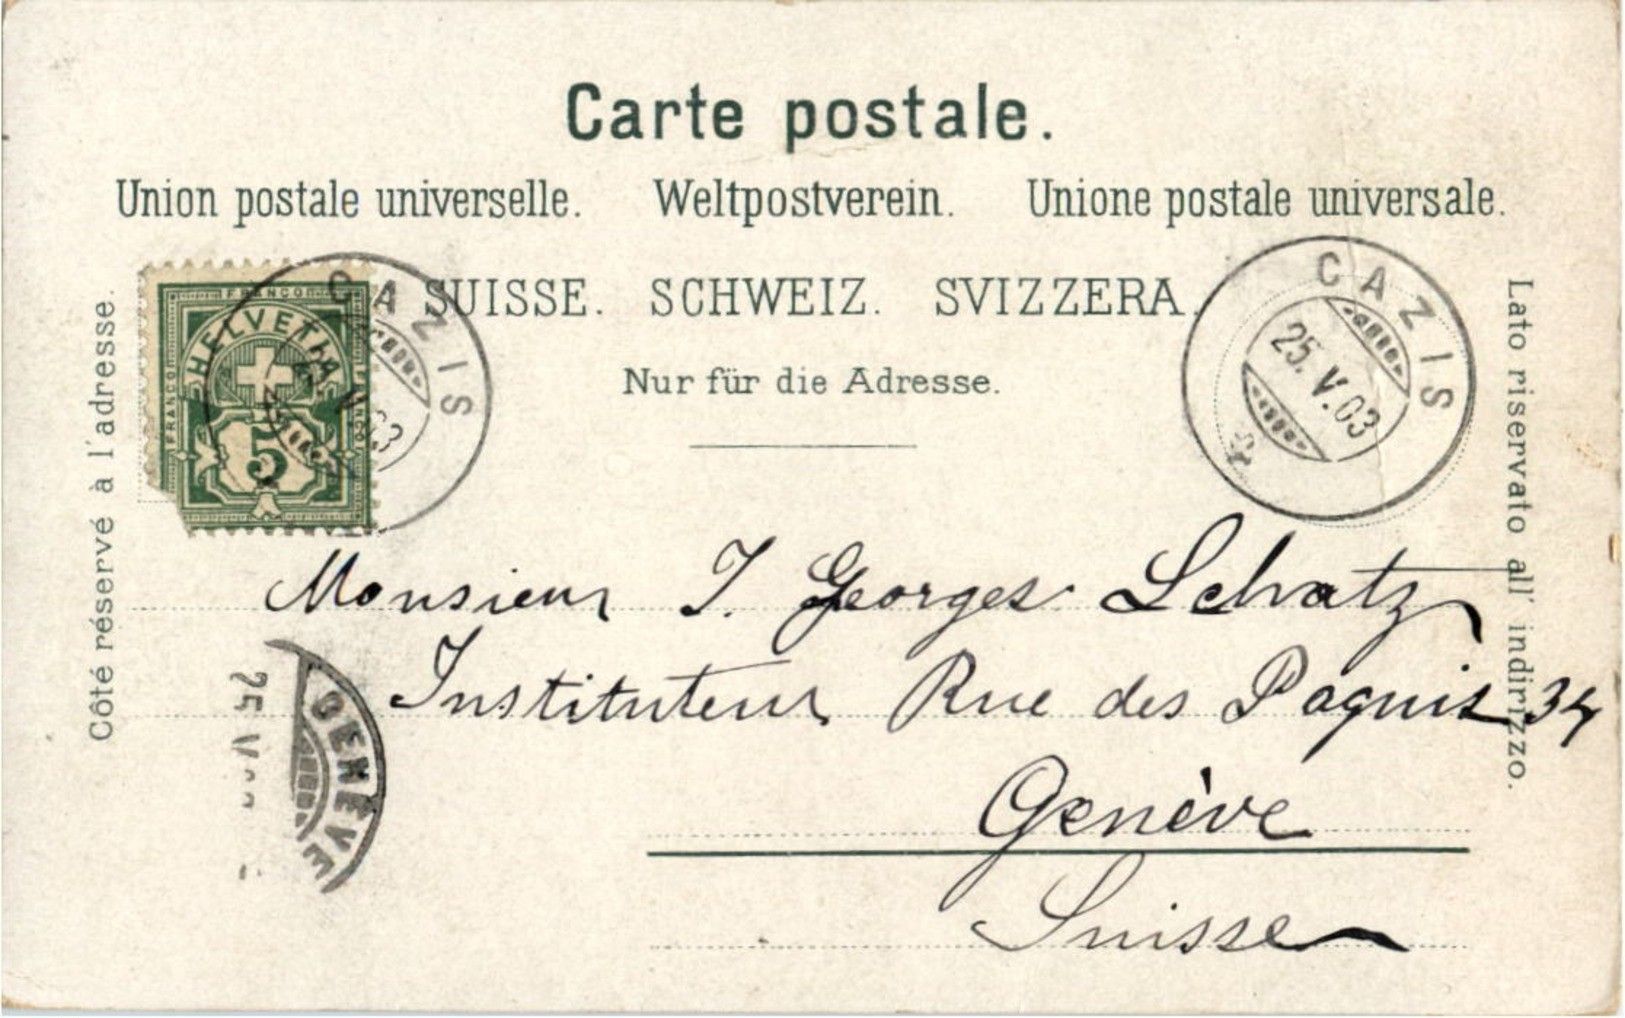 Carte postale.
Union postale universelle. Weltpostverein. Unione postale universale.
SUISSE. SCHWEIZ. SVIZZERA.
Nur für die Adresse.
Côté réservé à l'adresse.
Lato riservato all' indirizzo.
FRANCO
FRANCO
HELVETIA
5
CAZIS
CAZIS
25.V.03
Monsieur J. Georges Schatz
Instituteur Rue des Paquis 34
Genève
Suisse
GENÈVE
25 V